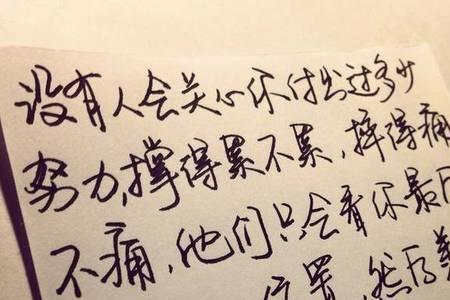 没有人会关心你付出过多少
努力,撑得累不累,摔得痛
不痛,他们只会看你最后
位置,然后羡